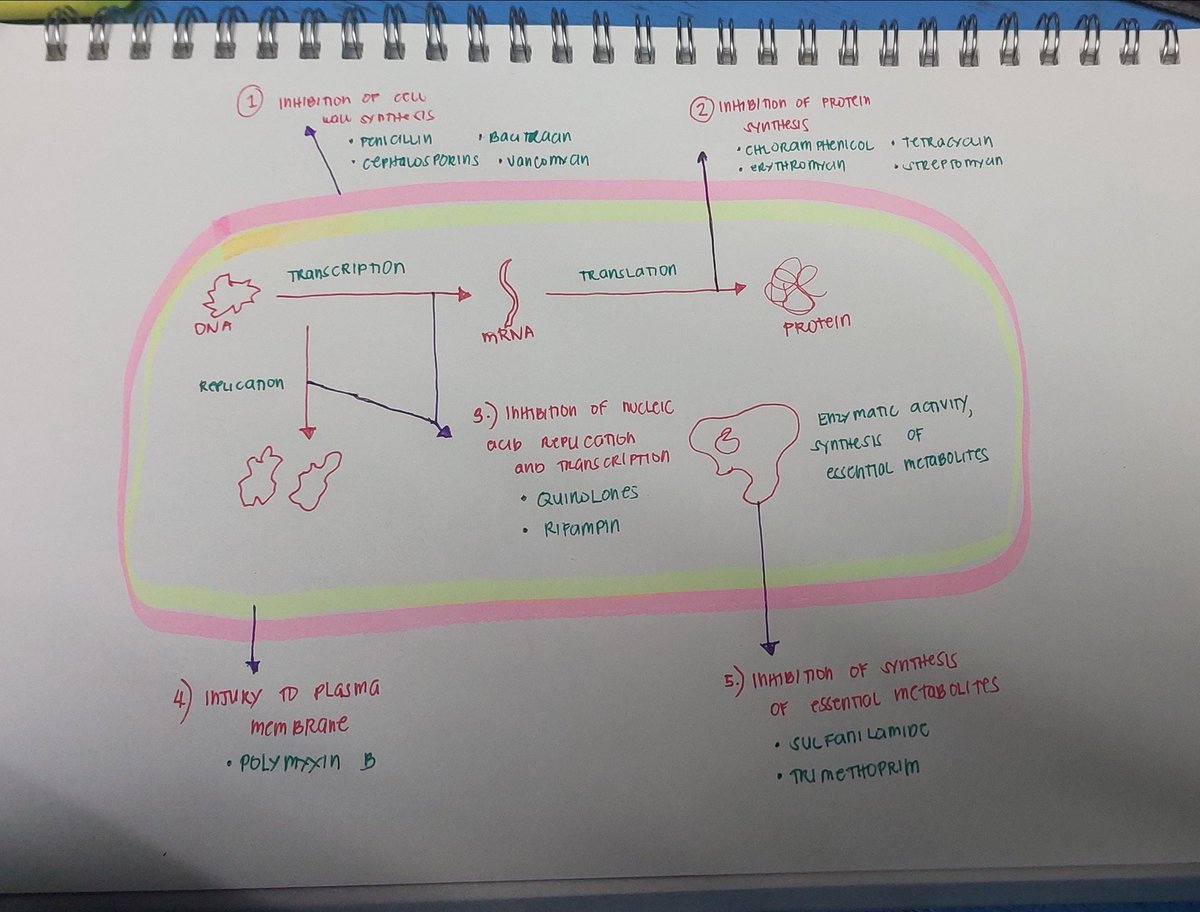 1 INHIBITION OF CELL
WALL SYNTHESIS
• PENICILLIN • BACITRACIN
• CEPHALOSPORINS • VANCOMYCIN
2 INHIBITION OF PROTEIN
SYNTHESIS
• CHLORAMPHENICOL • TETRACYCLIN
• ERYTHROMYCIN • STREPTOMYCIN
TRANSCRIPTION
TRANSLATION
DNA
mRNA
PROTEIN
REPLICATION
3.) INHIBITION OF NUCLEIC
ACID REPLICATION
AND TRANSCRIPTION
• QUINOLONES
• RIFAMPIN
ENZYMATIC ACTIVITY,
SYNTHESIS OF
ESSENTIAL METABOLITES
4) INJURY TO PLASMA
MEMBRANE
• POLYMYXIN B
5.) INHIBITION OF SYNTHESIS
OF ESSENTIAL METABOLITES
• SULFANILAMIDE
• TRIMETHOPRIM